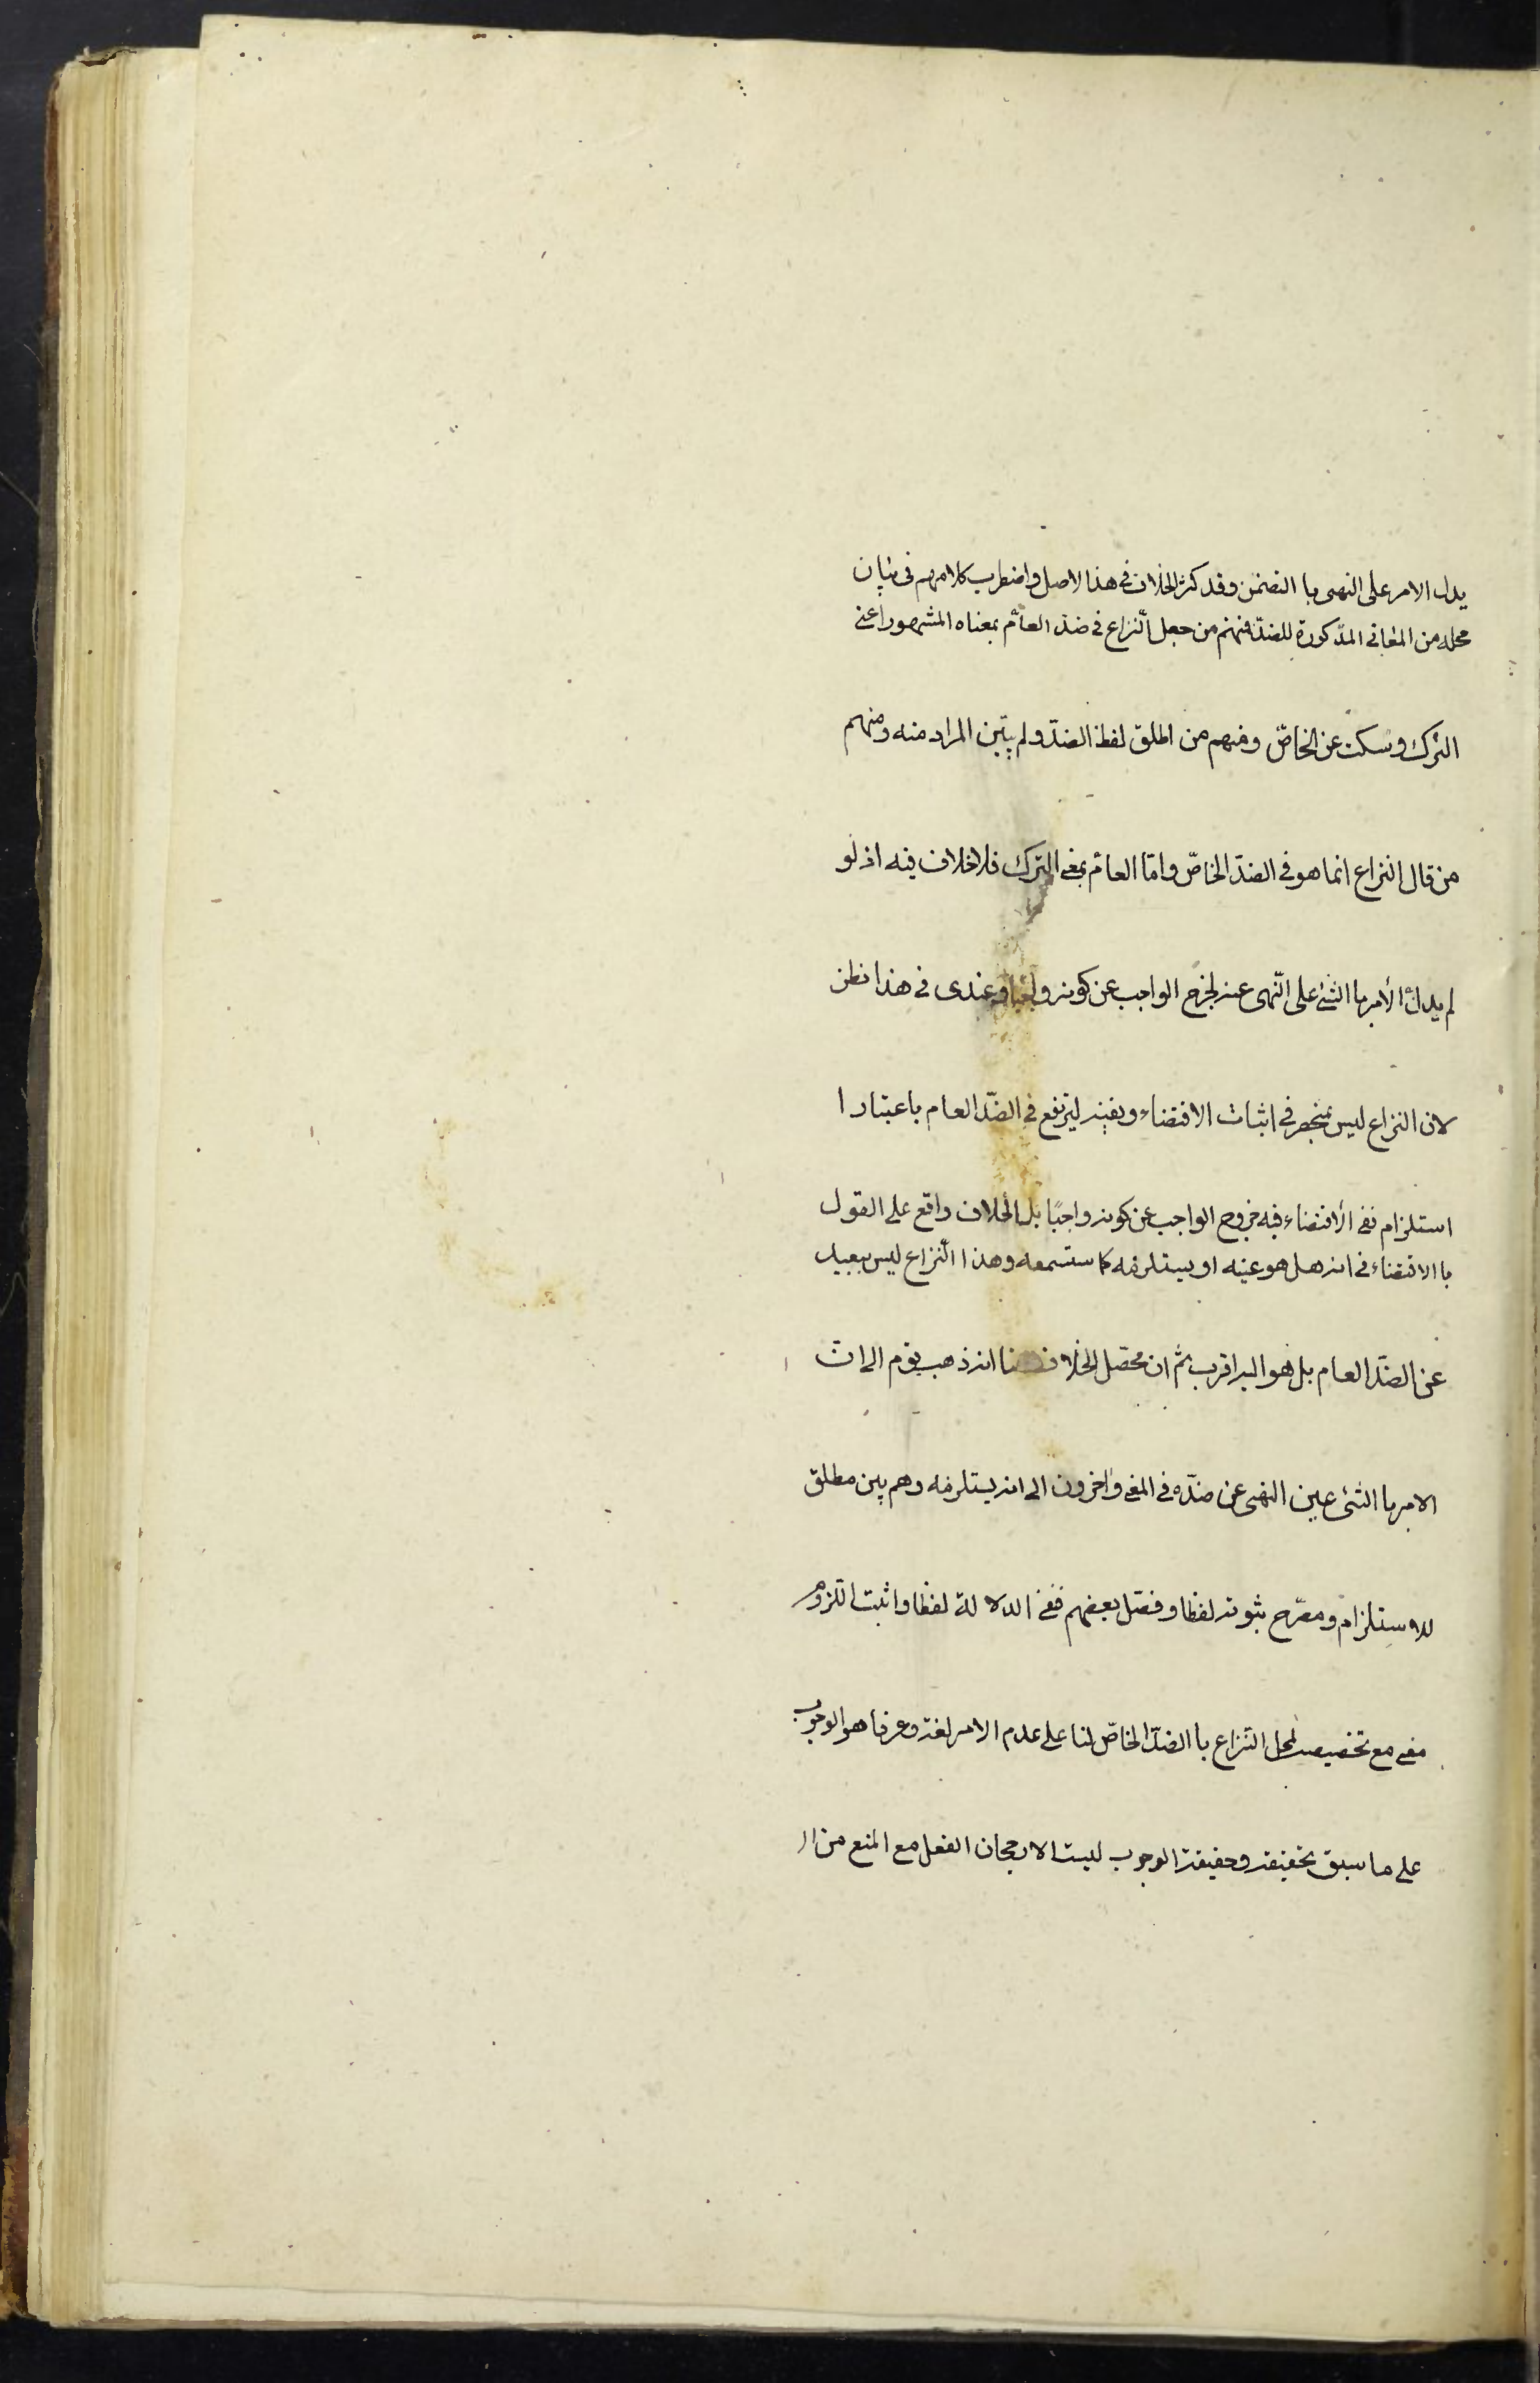 يدل الامر على النهى با التضمن وقد كثر الخلاف فى هذا الاصل واضطرب كلامهم فى بيان
محله من المعانى المذكورة للضد فمنهم من جعل النزاع فى ضد العام بمعناه المشهور اعنى
الترك وسكت عن الخاصّ ومنهم من اطلق لفظ الضدّ ولم يبيّن المراد منه ومنهم
من قال النزاع انما هو فى الضدّ الخاصّ وامّا العام بمعنى الترك فلا خلاف فيه اذ لو
لم يدل الأمر با الشئ على النّهى عنه لخرج الواجب عن كونه واجبا وعندى فى هذا نظر
لان النزاع ليس بمنحصر فى اثبات الاقتضاء ونفيه ليرتفع فى الضّد العام باعتبار ا
استلزام نفى الأقتضاء فيه خروج الواجب عن كونه واجبًا بل الخلاف واقع على القول
با الاقتضاء فى انه هل هو عينه او يستلزمه كما ستسمعه وهذا النّزاع ليس ببعيد
عن الضدّ العام بل هو اليه اقرب ثمّ ان محصّل الخلاف هنا انه ذهب قوم الى ان
الامر با الشئ عين النهى عن ضدّه فى المعنى واخرون الى انه يستلزمه وهم بين مطلق
للاستلزام ومصرّح بثبوته لفظا وفصّل بعضهم فنفى الدلالة لفظا واثبت اللزوم
معنى مع تخصيصه لمحل النّزاع با الضدّ الخاصّ لنا على عدم الامر لغة وعرفا هو الوجوب
على ما سبق تحقيقه وحقيقة الوجوب ليست الا رجحان الفعل مع المنع من ال